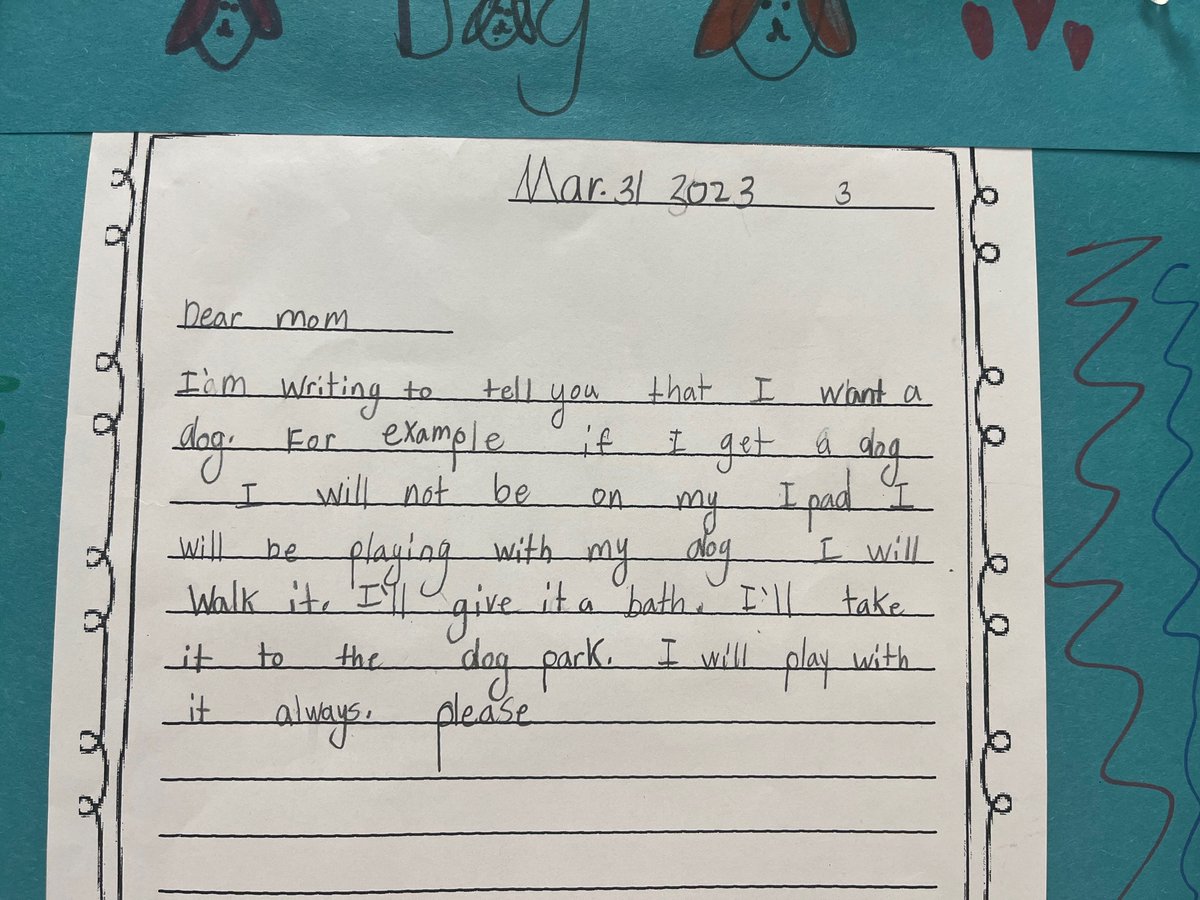 Dog
Mar. 31 2023 3
Dear mom
I'am writing to tell you that I want a
dog. For example if I get a dog
I will not be on my I pad I
will be playing with my dog I will
Walk it. I'll give it a bath. I'll take
it to the dog park. I will play with
it always. please